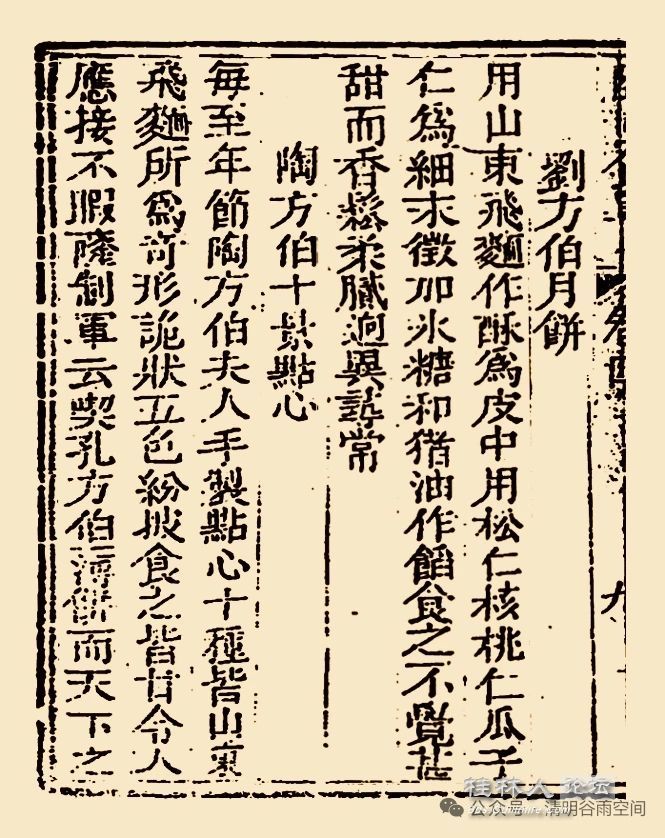 劉方伯月餅
用山東飛麵作酥爲皮中用松仁核桃仁瓜子
仁爲細末微加冰糖和猪油作餡食之不覺甚
甜而香鬆柔膩逈異尋常
陶方伯十景點心
每至年節陶方伯夫人手製點心十種皆山東
飛麵所爲奇形詭狀五色紛披食之皆甘令人
應接不暇薩制軍云喫孔方伯薄餅而天下之
九
桂林人论坛
公众号 · 清明谷雨空间